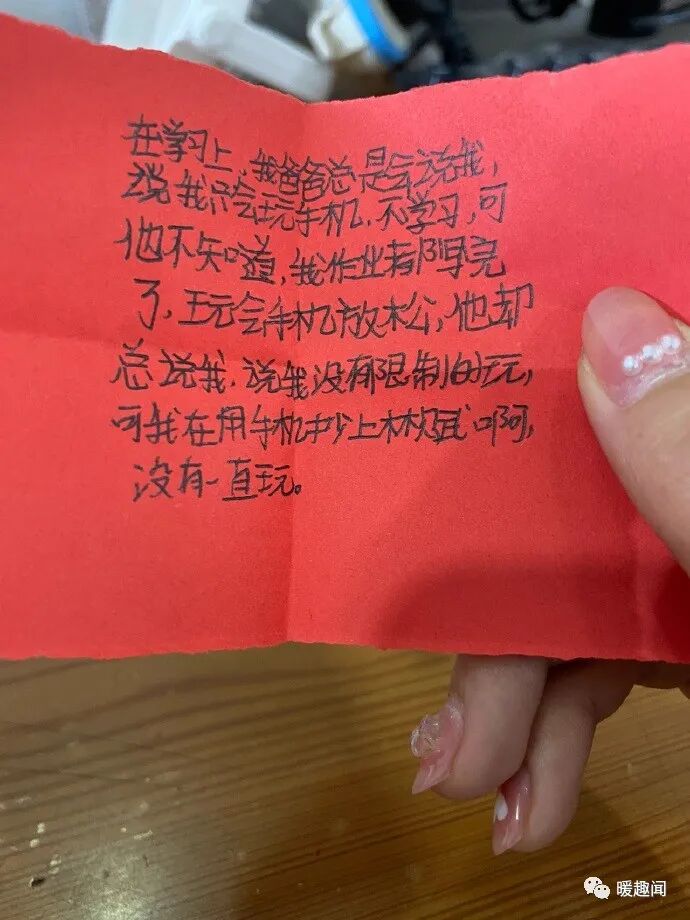 在学习上,我爸爸总是会说我,
说我只会玩手机,不学习,可
他不知道,我作业都早完
了,玩会手机放松,他却
总说我,说我没有限制的玩,
可我在用手机抄上林赋啊,
没有一直玩。
暖趣闻